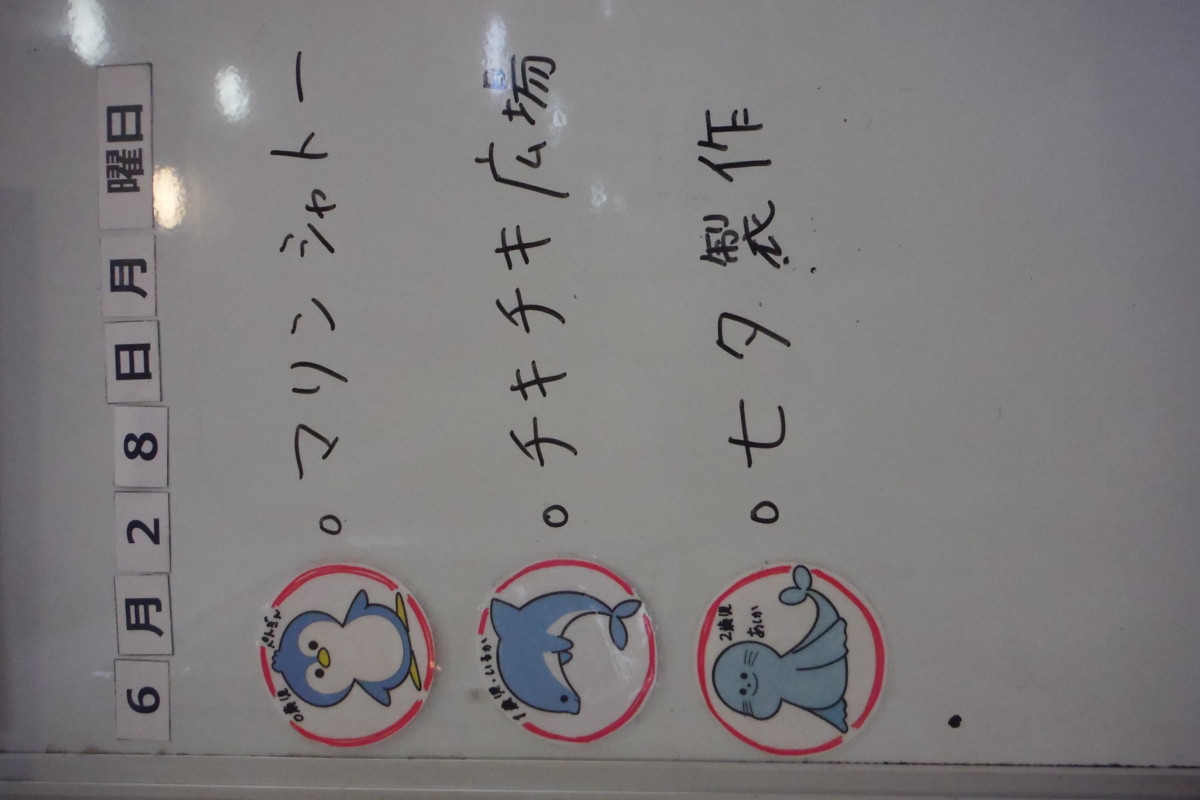 6月28日月曜日
0歳児 ぺんぎん
○マリンシャトー
1歳児・いるか
○チキチキ広場
2歳児 あしか
○七夕製作